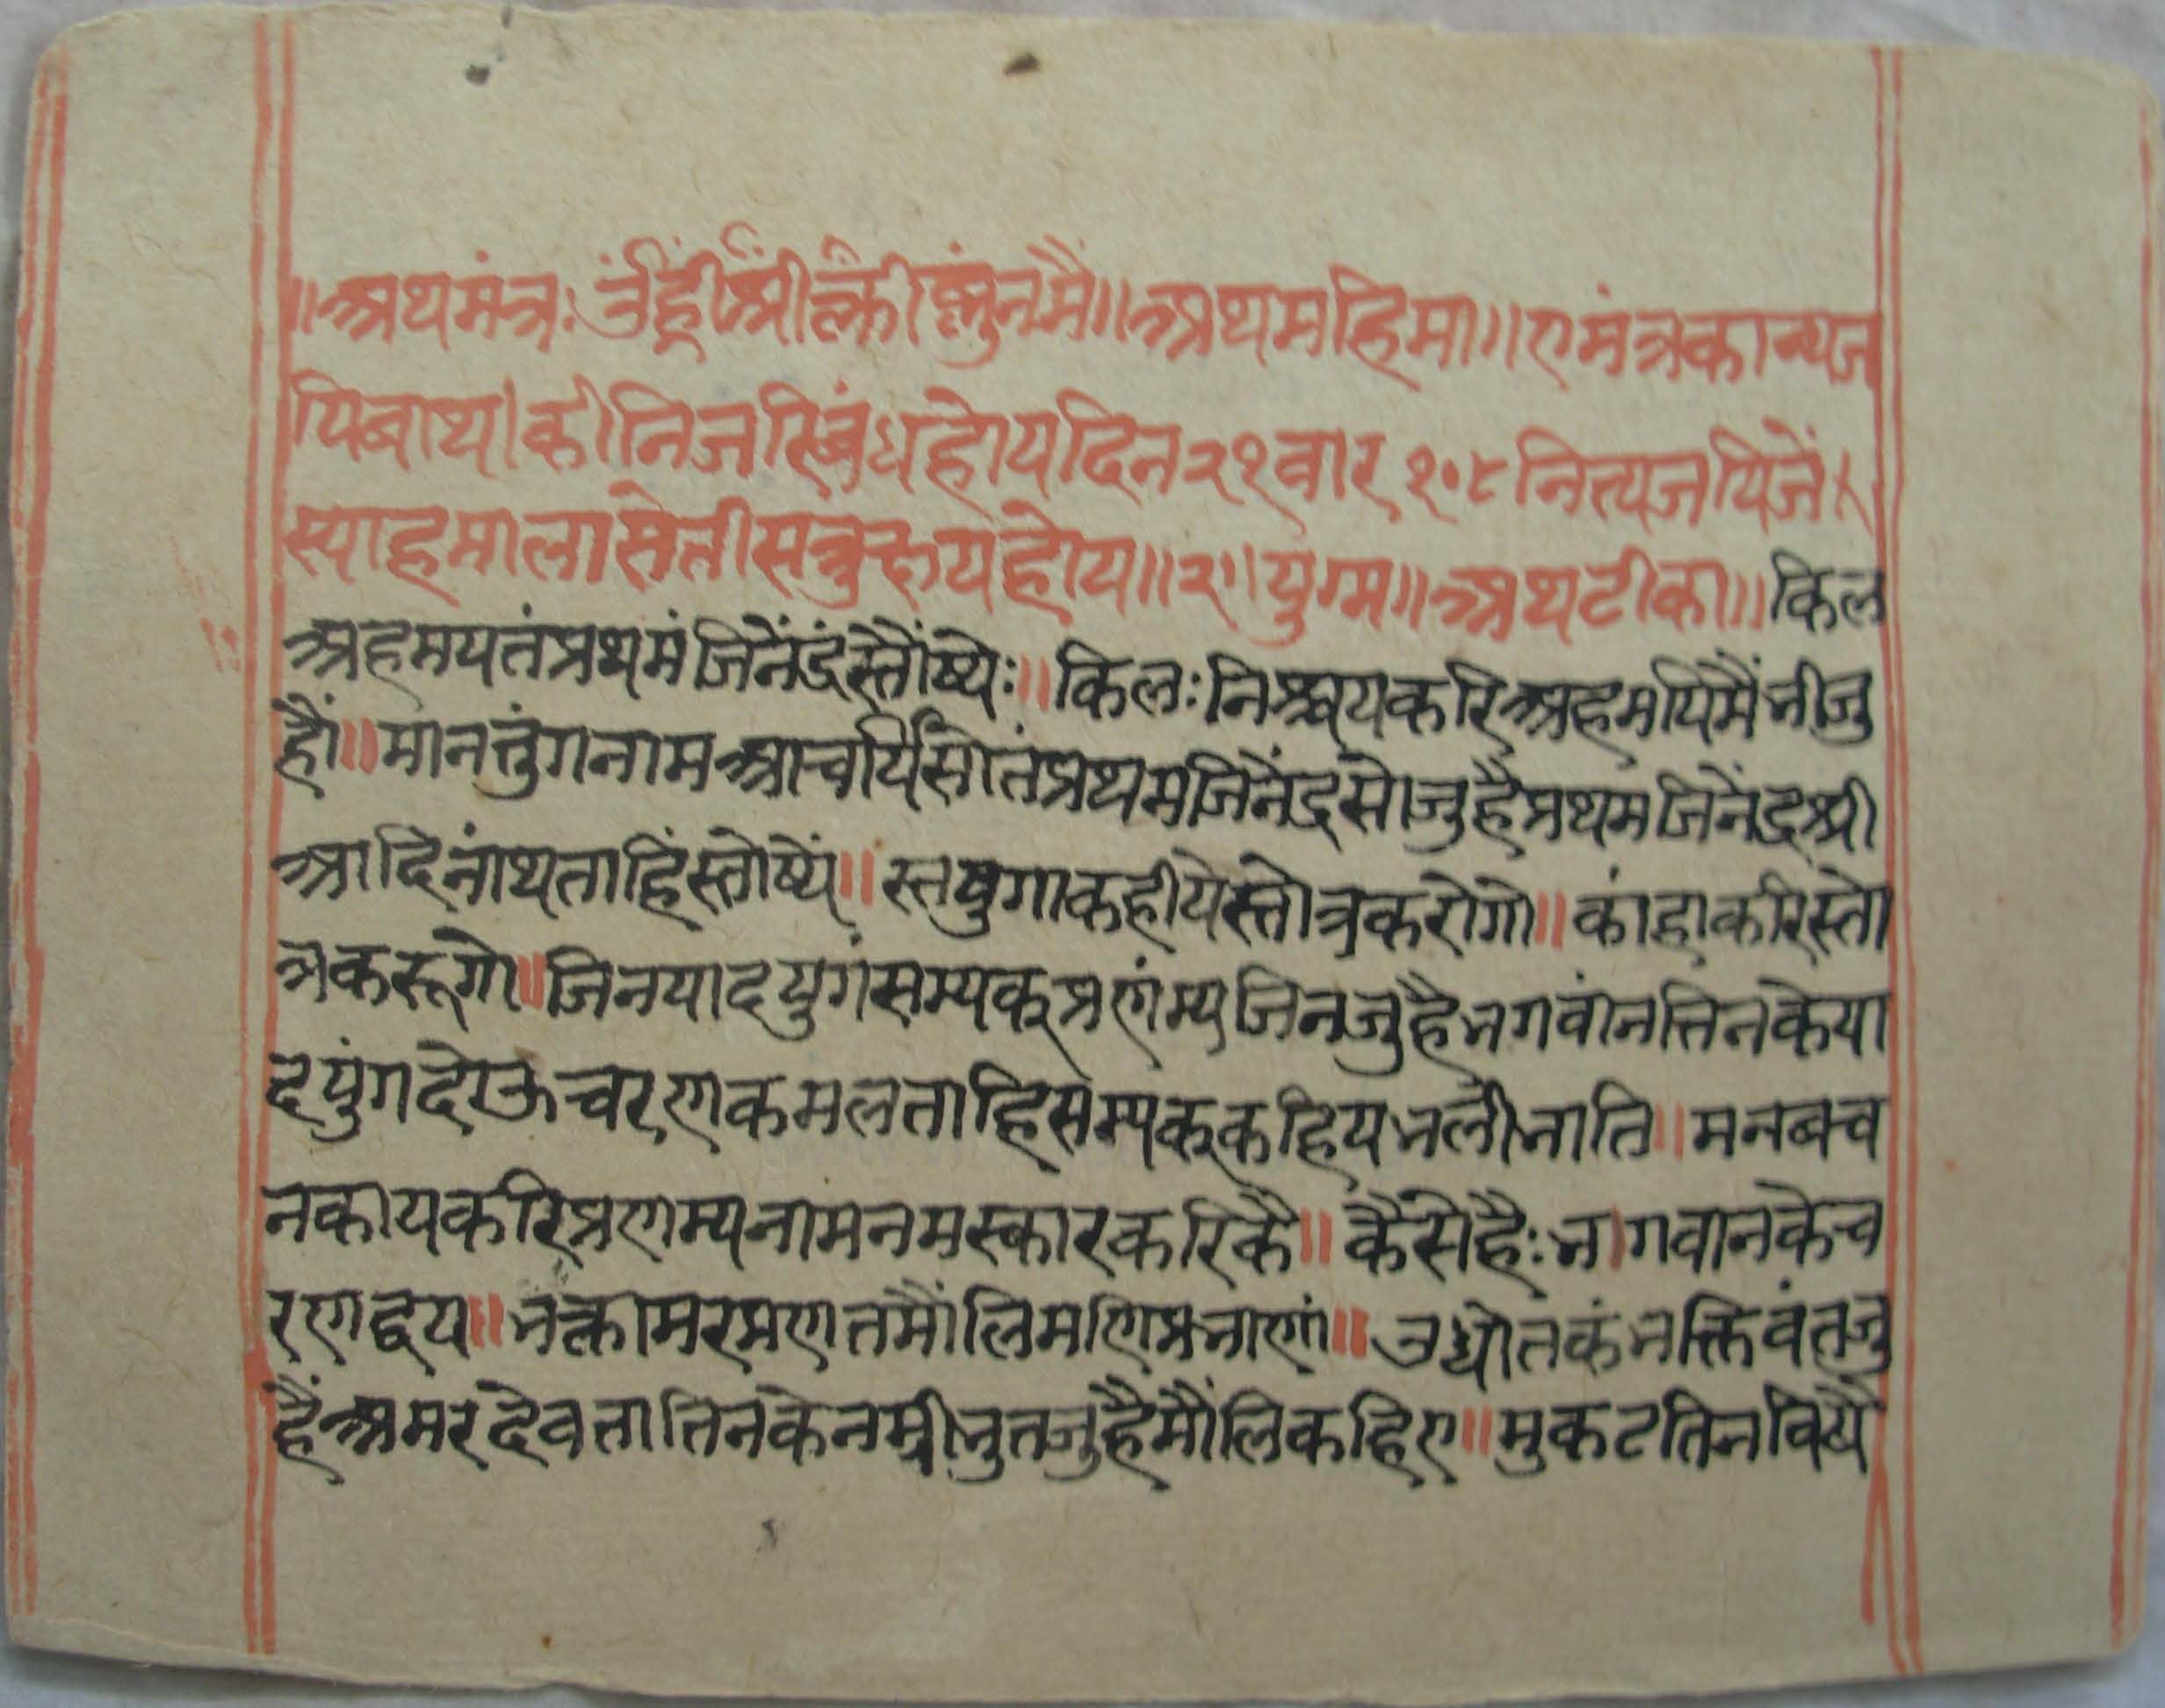 ॥अथमंत्रः उँह्रींश्रींक्लींब्लुंनमै॥अथमहिमा॥एमंत्रकाव्यज
होयदिन२१वार१०८नित्यजपिजें।
स्याहमालासेतीसत्रुक्षयहोय॥२॥युग्म॥अथटीका॥किल
अहमयतंप्रथमंजिनेंद्रंस्तौंष्येः॥किलःनिश्चयकरिअहमपिमैंभीजु
हौं॥मानतुंगनामआचार्यिसोतंप्रथमजिनेंद्रसोजुहैप्रथमजिनेंद्रश्री
आदिनांथताहिंस्तोष्यें॥स्तवुगाकहीयेस्तोत्रकरोगो॥कांहाकरिस्तो
त्रकरूगो॥जिनपादयुगंसम्यक्प्रणंम्यजिनजुहैभगवांनतिनकेपा
दयुंगदोऊचरणकमलताहिसम्यक्कहियभलीभाति॥मनबच
नकायकरिप्रणम्यनामनमस्कारकरिकै॥कैसेहैःभागवानकेच
रणद्वय॥भक्तामरप्रणतमौलिमणिप्रभाणां॥उद्योतकंभक्तिवंतजु
हैंअमरदेवतातिनकेनम्रीभुतजुहैंमौलिकहिए॥मुकटतिनविषै